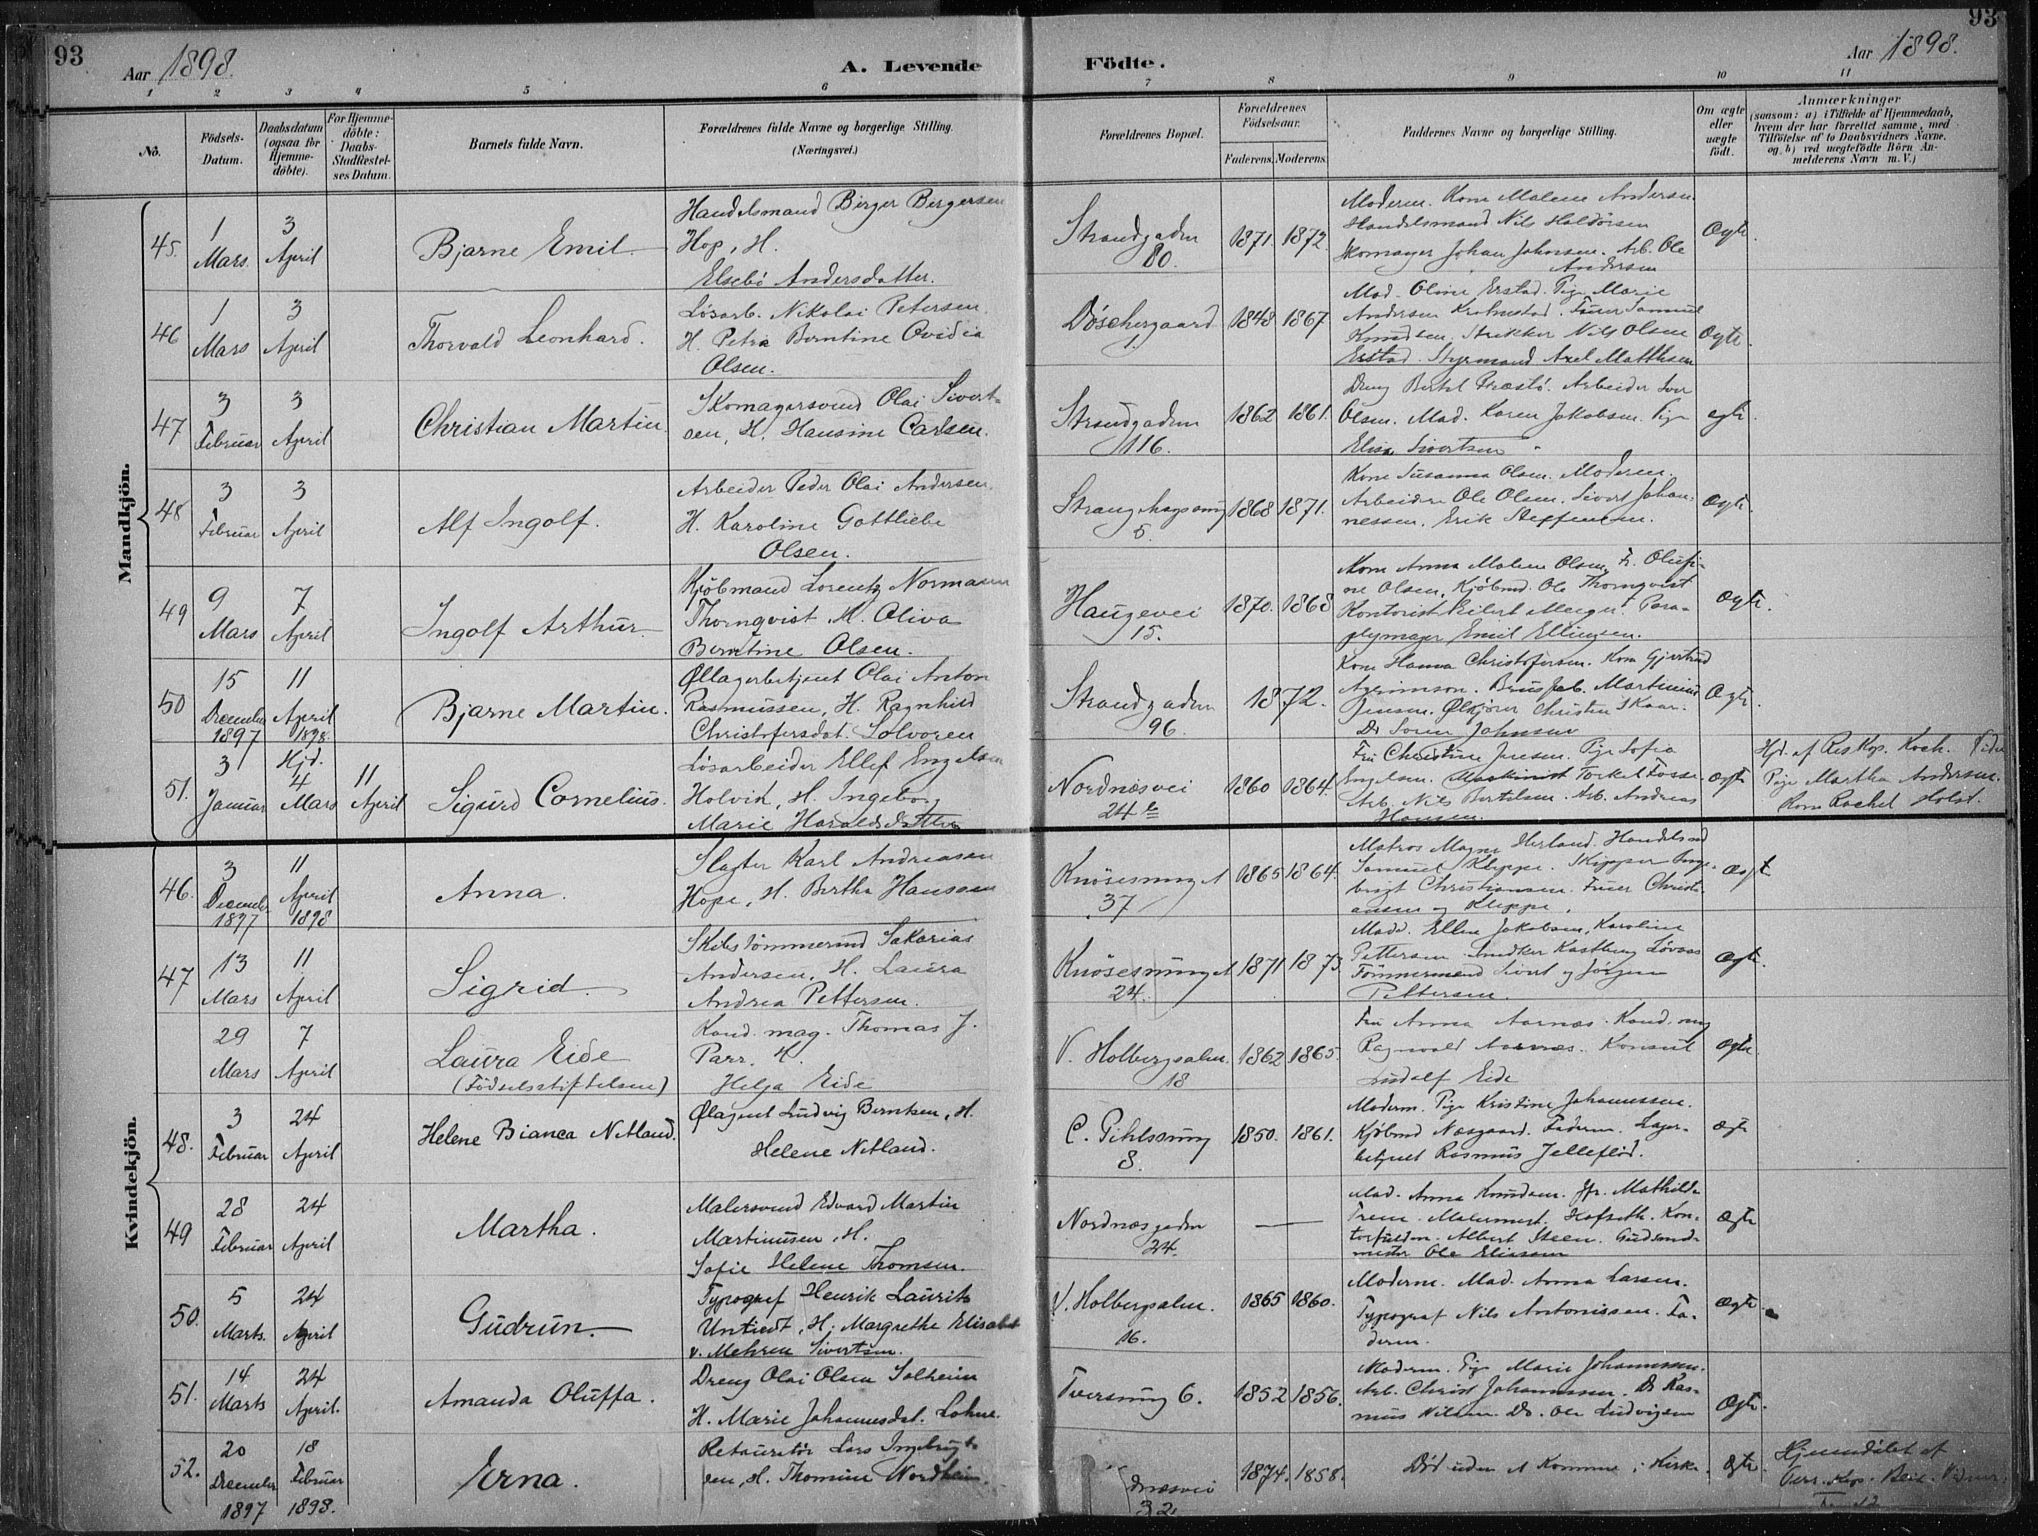 93
Aar 1898.
A. Levende Födte.
Aar 1898.
93
1 2 3 4 5 6 7 8 9 10 11
No. Födsels-Datum. Daabsdatum (ogsaa for Hjemme-döbte). For Hjemme-döbte: Daabs-Stadfæstel-ses Datum. Barnets fulde Navn. Forældrenes fulde Navne og borgerlige Stilling. (Næringsvei.) Forældrenes Bopæl. Forældrenes Födselsaar. Faderens. Moderens. Faddernes Navne og borgerlige Stilling. Om ægte eller uægte födt. Anmærkninger (saasom: a) i Tilfælde af Hjemmedaab, hvem der har forrettet samme, med Tilföielse af to Daabsvidners Navne. og b) ved uægtefödte Börn An-melderens Navn m. V.)
Mandkjön.
45. 1 Mars 3 April Bjarne Emil
Handelsmand Birger Bergersen
Hop, H.
Elsebö Andersdatter.
Strandgaden 80 1871. 1872.
Moderen. Kone Malene Andersen.
Handelsmand Nils Haldorsen
Skomager Johan Johnsen. Arb. Ole
Andersen
Ægte
46 1 Mars 3 April Thorvald Leonhard.
Løsarb. Nikolai Petersen.
H. Petra Berntine Ovidia
Olsen.
Döschergaard 1. 1848 1867
Mad. Oline Erstad. Pige Marie
Andersen. Fruer Samuel
Knudsen. Snekker Nils Olsen
Erstad. Styrmand Axel Matthesen
Ægte.
47 3 Februar 3 April Christian Martin
Skomagersvend Olai Sivert-
sen, H. Hansine Carlsen.
Strandgaden 116. 1862 1861.
Dreng Bertel Præstö. Arbeider Iver
Olsen. Mad. Karen Jakobsen. Pige
Elisa Sivertsen
ægte
48 3 Februar 3 April Alf Ingolf.
Arbeider Peder Olai Andersen.
H. Karoline Gottliebe
Olsen.
Stranghagsmug 5. 1868 1871.
Kone Susanna Olsen. Moderen.
Arbeidere Ole Olsen. Sivert Johan-
nessen. Erik Steffensen.
Ægte.
49 9 Mars 7 April Ingolf Arthur.
Kjöbmand Lorentz Normann
Thornqvist H. Oliva
Berntine Olsen.
Haugevei 15. 1870. 1868
Kone Anna Malene Olsen, Fr. Olufi-
ne Olsen, Kjöbmd. Ole Thornqvist
Kontorist Eilert Meyer. Para-
plymager Emil Ellingsen.
Ægte.
50 15 December 1897 11 April 1898. Bjarne Martin.
Øllagerbetjent Olai Anton
Rasmussen, H. Ragnhild
Christofersdat. Solvoren
Strandgaden 96. 1872.
Kone Hanna Christofersen. Kone Gjertrud
Martinius
Jensen. Ølkjører Christen Skaar.
Do Soren Johnsen
Ægte.
51. 3 Januar Hjd. 4 Mars 11 April Sigurd Cornelius.
Løsarbeider Ellef Engelsen
Holvik, H. Ingeborg
Marie Haraldsdatter
Nordnæsvei 24 b 1860 1864.
Fru Christine Jensen. Pige Sofie
Engelsen. Maskinist Torkel Fosse
Arb. Nils Bertelsen. Arb. Andreas
Hansen.
Ægte
Hjd. af Res Kap. Koch. Vidn
Pige Martha Andersen.
Kone Rachel Holst.
Kvindekjön.
46. 3 December 1897 11 April 1898 Anna.
Slagter Karl Andreasen
Hope, H. Bertha Hanssen
Knösesmuget 37 1865 1864.
Matros Magne Herland. Handelsmd
Samuel Kleppe. Skipper Inge-
brigt Christiansen. Fruer Christi-
ansen og Kleppe.
Ægt.
47 13 Mars 11 April Sigrid.
Skibstömmermd Sakarias
Andersen, H. Laura
Andrea Pettersen.
Knösesmuget 24. 1871 1873.
Madd. Ellen Jakobsen, Karoline
Pettersen. Snedker Løvaas
Tömmermænd Sivert og Jörgen
Pettersen.
Ægte.
29 Mars 7 April Laura Eide
(Födselsstiftelsen)
Kand. mag. Thomas J.
Parr. H.
Helga Eide
V. Holbergsalm. 18 1862 1865.
Fru Anna Aarnæs. Kand. mag
Ragnvald Aarnæs. Konsul
Ludolf Eide
Ægte.
48. 3 Februar 24 April Helene Bianca Netland.
Ølagent Ludvig Berntsen, H.
Helene Netland.
C. Pihlssmug 8. 1850. 1861.
Moderen. Pige Kristine Johannessen.
Kjöbmd Næsgaard. Faderen. Lager-
betjent Rasmus Jelleflöd.
Ægte
49 28 Februar 24 April Martha.
Malersvend Edvard Martin
Martinusen, H.
Sofie Helene Thomsen.
Nordnæsgaden 24.
Mad. Anna Knudsen. Jfr. Mathilde
Malermest. Hofseth. Kon-
torfuldm. Albert Steen.
mester Ole Eliassen
Ægte
50. 5 Marts. 24 April Gudrun.
Typograf Henrik Laurits
Untiedt, H. Margrethe Elisabet
v. Mehren Sivertsen.
V. Holbergsalm. 16. 1865 1860.
Moderen. Mad. Anna Larsen.
Typograf Nils Antonissen. Fa-
deren.
Ægte
51. 14 Marts 24 April. Amanda Oluffa.
Dreng Olai Olsen Solheim
H. Marie Johannesdat. Lohne.
Tversmug 6. 1852 1856.
Moderen. Pige Marie Johannessen.
Arb. Christ Johannessen. Do Ras-
mus Nilsen. Do. Ole Ludvigsen
Ægte.
52. 20 December 1897 18 Februar 1898. Erna.
Restauratör Lars Ingebrigt-
sen, H. Thomine Nordheim.
næsvei 32 1874. 1858.
Död uden at komme i Kirke.
Ægte.
Hjemmdöbt af
Kap.